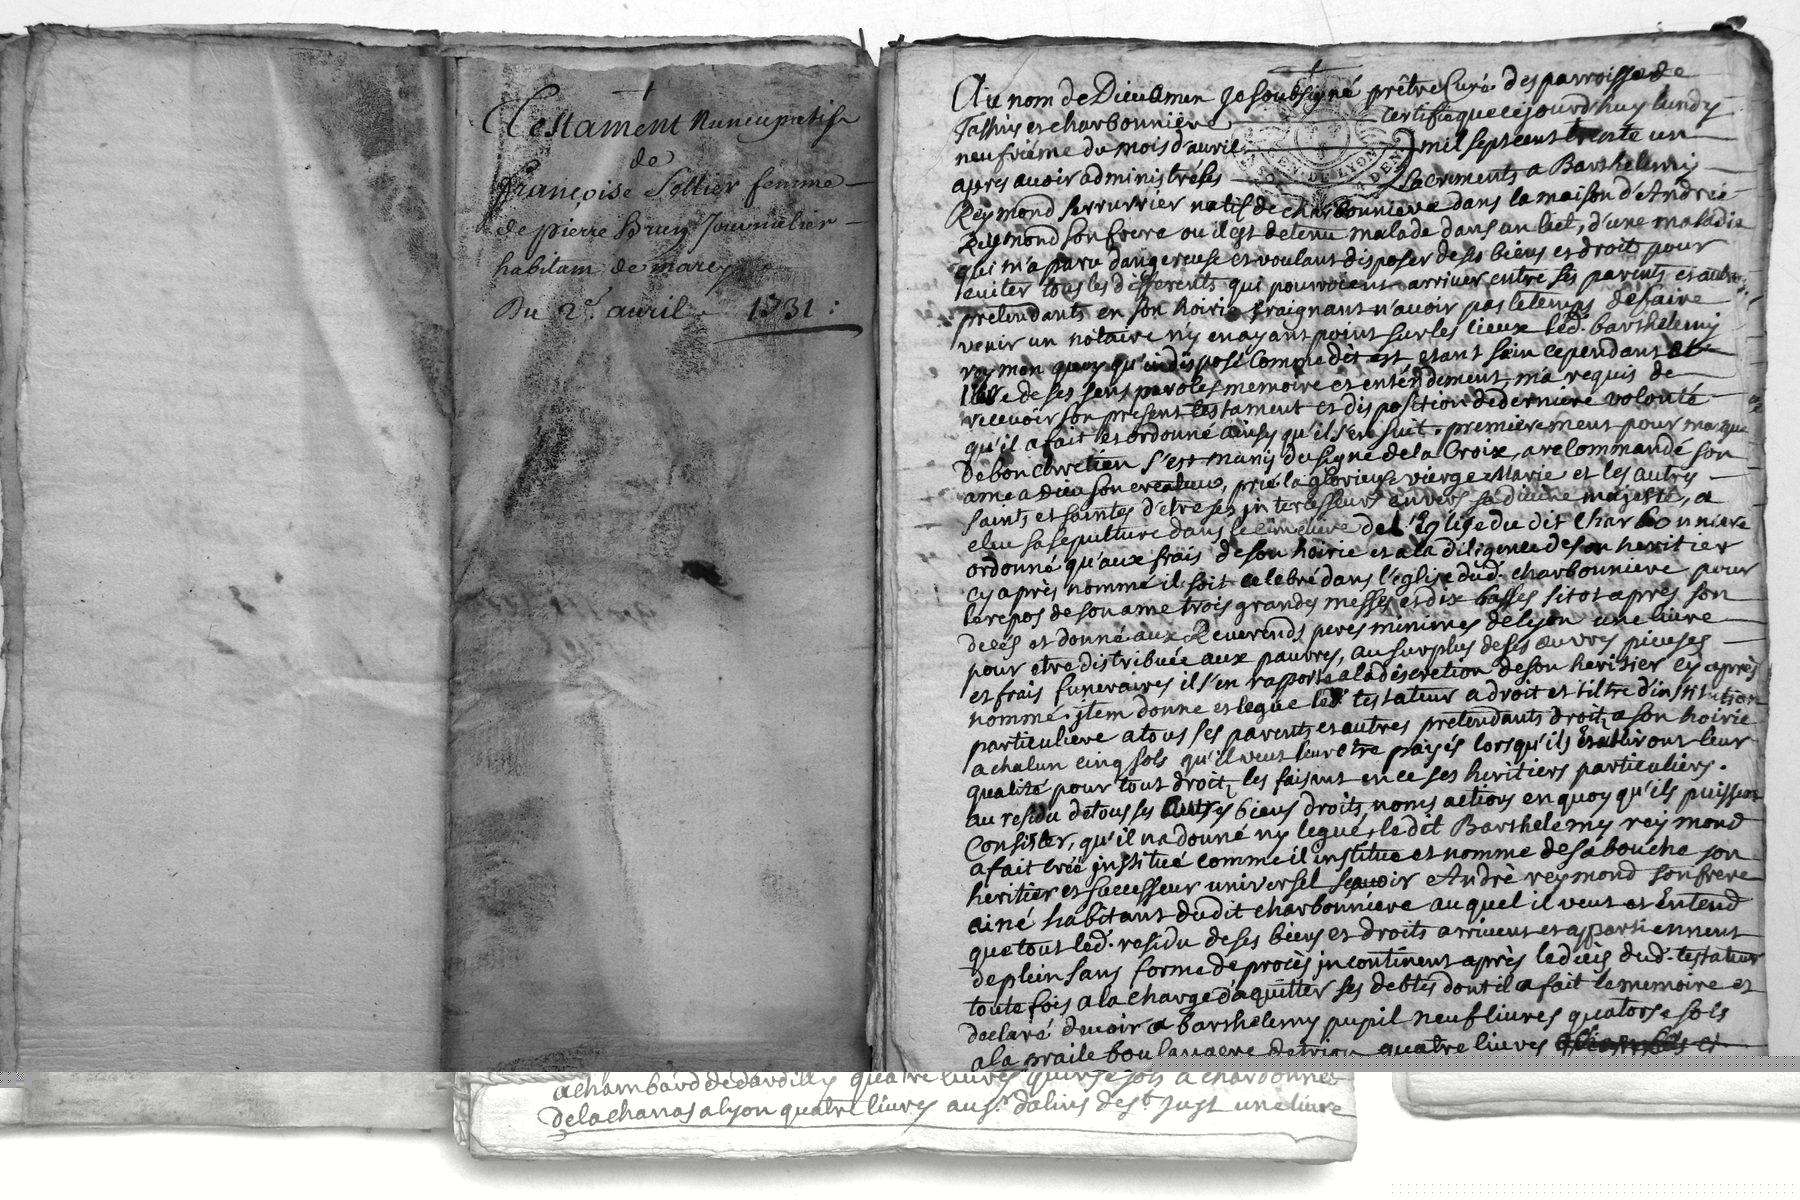 Testament Nuncupatif
de
Françoise Sollier femme
de pierre Brun Journalier
habitant de marcy
Du 2e. avril 1731 :
Au nom de Dieu Amen Je soubsigné prêtre Curé des parroisse de
Tassins et charbonniere certifie que cejourdhuy lundy
neufvième du mois d'avril mil sept cent trente un
apres avoir administré les sacrements a Barthelemi
Reymond serrurrier natif de charbonniere dans la maison d'André
Reymond son frere ou il est detenu malade dans un lict, d'une maladie
qui m'a paru dangereuse et voulant disposer de ses biens et droits pour
eviter tous les differents qui pourroient arriver entre ses parents et autres
pretendants en son hoirie craignant n'avoir pas le temps de faire
venir un notaire n'y en ayant point sur les lieux led. barthelemy
reymon quoy qu'indisposé comme dit est etant sain cependant et
libre de ses sens paroles memoire et entendement, m'a requis de
recevoir son present testament et disposition de derniere volonté
qu'il a fait et ordonné ainsy qu'il s'en suit. premierement pour marque
de bon chretien s'est muny du signe de la Croix, a recommandé son
ame a Dieu son createur, prié la glorieuse vierge Marie et les autres
saints et saintes d'etre ses intercesseurs envers sa divine majesté, a
elu sa sepulture dans le cimetiere de l'Eglise du dit charbonniere
ordonné qu'aux frais de son hoirie et a la diligence de son heritier
cy après nommé il soit celebré dans l'église dud. charbonniere pour
le repos de son ame trois grandes messes et dix basses sitot après son
decés et donné aux Reverends peres minimes de lyon une livre
pour etre distribuée aux pauvres, au surplus de ses œuvres pieuses
et frais funeraires il s'en rapporte a la discretion de son heritier cy après
nommé. jtem donne et legue led. testateur a droit et tiltre d'institution
particuliere a tous ses parents et autres pretendants droits a son hoirie
a chacun cinq sols qu'il veut leur etre payés lorsqu'ils établiront leur
qualité pour tout droit, les faisant en ce ses heritiers particuliers.
au residu de tous ses autres biens droits, noms actions en quoy qu'ils puissent
Consister, qu'il n'a donné ny legué, le dit Barthelemy reymond
a fait créé jnstitué comme il institue et nomme de sa bouche son
heritier et successeur universel sçavoir André reymond son frere
ainé habitant dudit charbonniere auquel il veut et entend
que tout led. residu de ses biens et droits arrivent et appartiennent
de plein sans forme de procès jncontinent après le decès dud. testateur
toute fois a la charge d'aquitter ses debtes dont il a fait le memoire et
declaré devoir a barthelemy pupil neuf livres quatorse sols
a la praile boulangere de trion quatre livres et
a chambard de dardilly quatre livres quinse sols a chardonnet
de la chanas a lyon quatre livres au sr. dalins de st. just une livre